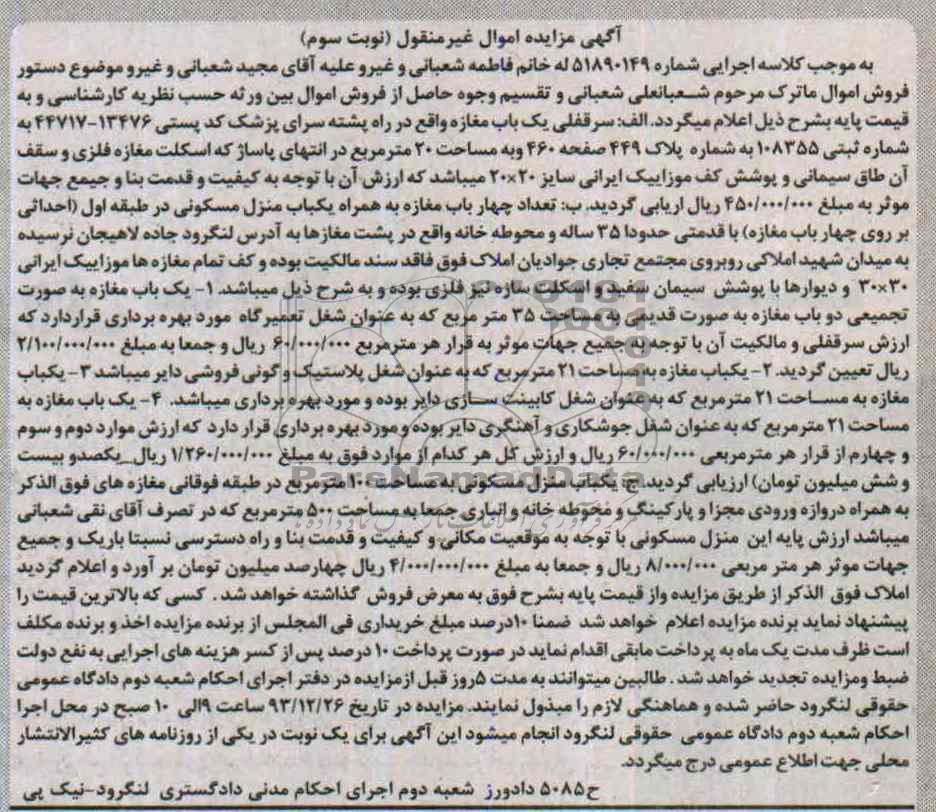 آگهی مزایده اموال غیرمنقول (نوبت سوم)
به موجب کلاسه اجرایی شماره ۵۱۸۹۰۱۴۹ له خانم فاطمه شعبانی و غیرو علیه آقای مجید شعبانی و غیرو موضوع دستور
فروش اموال ماترک مرحوم شعبانعلی شعبانی و تقسیم وجوه حاصل از فروش اموال بین ورثه حسب نظریه کارشناسی و به
قیمت پایه بشرح ذیل اعلام میگردد. الف: سرقفلی یک باب مغازه واقع در راه پشته سرای پزشک کد پستی ۱۳۴۷۶-۴۴۷۱۷ به
شماره ثبتی ۱۰۸۳۵۵ به شماره پلاک ۴۴۹ صفحه ۴۶۰ وبه مساحت ۲۰ مترمربع در انتهای پاساژ که اسکلت مغازه فلزی و سقف
آن طاق سیمانی و پوشش کف موزاییک ایرانی سایز ۲۰×۲۰ میباشد که ارزش آن با توجه به کیفیت و قدمت بنا و جیمع جهات
موثر به مبلغ ۴۵۰/۰۰۰/۰۰۰ ریال اریابی گردید. ب: تعداد چهار باب مغازه به همراه یکباب منزل مسکونی در طبقه اول (احداثی
بر روی چهار باب مغازه) با قدمتی حدودا ۳۵ ساله و محوطه خانه واقع در پشت مغازها به آدرس لنگرود جاده لاهیجان نرسیده
به میدان شهید املاکی روبروی مجتمع تجاری جوادیان املاک فوق فاقد سند مالکیت بوده و کف تمام مغازه ها موزاییک ایرانی
۳۰×۳۰ و دیوارها با پوشش سیمان سفید و اسکلت سازه نیز فلزی بوده و به شرح ذیل میباشد. ۱- یک باب مغازه به صورت
تجمیعی دو باب مغازه به صورت قدیمی به مساحت ۳۵ متر مربع که به عنوان شغل تعمیرگاه مورد بهره برداری قراردارد که
ارزش سرقفلی و مالکیت آن با توجه به جمیع جهات موثر به قرار هر مترمربع ۶۰/۰۰۰/۰۰۰ ریال و جمعا به مبلغ ۲/۱۰۰/۰۰۰/۰۰۰
ریال تعیین گردید. ۲- یکباب مغازه به مساحت ۲۱ مترمربع که به عنوان شغل پلاستیک و گونی فروشی دایر میباشد ۳- یکباب
مغازه به مساحت ۲۱ مترمربع که به عنوان شغل کابینت سازی دایر بوده و مورد بهره برداری میباشد. ۴- یک باب مغازه به
مساحت ۲۱ مترمربع که به عنوان شغل جوشکاری و آهنگری دایر بوده و مورد بهره برداری قرار دارد که ارزش موارد دوم و سوم
و چهارم از قرار هر مترمربعی ۶۰/۰۰۰/۰۰۰ ریال و ارزش کل هر کدام از موارد فوق به مبلغ ۱/۲۶۰/۰۰۰/۰۰۰ ریال_یکصدو بیست
و شش میلیون تومان) ارزیابی گردید. ج: یکباب منزل مسکونی به مساحت ۱۰۰ مترمربع در طبقه فوقانی مغازه های فوق الذکر
به همراه دروازه ورودی مجزا و پارکینگ و محوطه خانه و انباری جمعا به مساحت ۵۰۰ مترمربع که در تصرف آقای نقی شعبانی
میباشد ارزش پایه این منزل مسکونی با توجه به موقعیت مکانی و کیفیت و قدمت بنا و راه دسترسی نسبتا باریک و جمیع
جهات موثر هر متر مربعی ۸/۰۰۰/۰۰۰ ریال و جمعا به مبلغ ۴/۰۰۰/۰۰۰/۰۰۰ ریال چهارصد میلیون تومان بر آورد و اعلام گردید
املاک فوق الذکر از طریق مزایده واز قیمت پایه بشرح فوق به معرض فروش گذاشته خواهد شد. کسی که بالاترین قیمت را
پیشنهاد نماید برنده مزایده اعلام خواهد شد ضمنا ۱۰درصد مبلغ خریداری فی المجلس از برنده مزایده اخذ و برنده مکلف
است ظرف مدت یک ماه به پرداخت مابقی اقدام نماید در صورت پرداخت ۱۰ درصد پس از کسر هزینه های اجرایی به نفع دولت
ضبط ومزایده تجدید خواهد شد. طالبین میتوانند به مدت ۵روز قبل ازمزایده در دفتر اجرای احکام شعبه دوم دادگاه عمومی
حقوقی لنگرود حاضر شده و هماهنگی لازم را مبذول نمایند. مزایده در تاریخ ۹۳/۱۲/۲۶ ساعت ۹الی ۱۰ صبح در محل اجرا
احکام شعبه دوم دادگاه عمومی حقوقی لنگرود انجام میشود این آگهی برای یک نوبت در یکی از روزنامه های کثیرالانتشار
محلی جهت اطلاع عمومی درج میگردد.
ح۵۰۸۵ دادورز شعبه دوم اجرای احکام مدنی دادگستری لنگرود-نیک پی
ParsNamadData